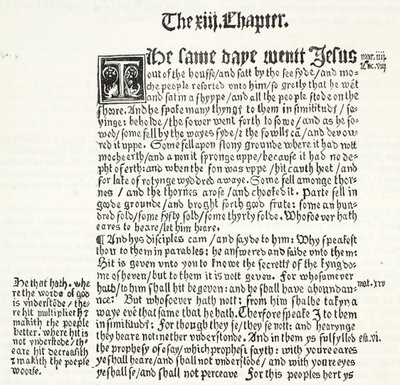 The xiij. Chapter.
The same daye wentt Jesus
out of the housse/ and satt by the see syde/ and mo-
che people resorted unto him/ so gretly that he wēt
and sat in a shyppe/ and all the people stode on the
shoore. And he spake many thyngs to them in similituds/ sa-
yinge: beholde/ the sower went forth to sowe/ and as he so-
wed/ some fell by the wayes syde/ the fowlls cā/ and devou-
red it uppe. Some fell apon stony grounde where it had nott
moche erth/ and a non it spronge uppe/ because it had no de-
pht of erth: and when the son was uppe/ hit cauth heet/ and
for lake of rotynge wyddred awaye. Some fell amonge thor-
nes / and the thornes arose/ and chooked it. Parte fell in
goode grounde/ and broght forth good frute: some an hun-
dred fold/ some fyfty fold/ some thyrty folde. Whosoever hath
eares to heare/ let him heare.
¶ And hys disciples cam / and sayde to him: Why speakest
thou to them in parables: he answered and saide unto them:
Hit is geven unto you to knowe the secretts of the kyngdo-
me of heven/ but to them it is nott geven. For whosumever
hath/ to him shall hit be geven: and he shall have aboundan-
ce: But whosoever hath nott: from him shalbe takyn a
waye eve that same that he hath. Therfore speake I to them
in similituds: For though they se/ they se nott: and hearynge
they heare not: nether vnderstonde. And in them ys fulfylled
the prophesy of esay/ which prophesi sayth: with youre eares
ye shall heare/ and shall not vnderstōde/ and with youre eyes
ye shall se/ and shall not perceave For this peoples hert ys
mar. iiij.
Luc. viij
mat. xxv
esa. vi.
He that hath. whe
re the worde of god
is vnderstōde/ the
re hit multiplieth ī
makith the people
better. where hit is
not vnderstode/ th-
eare hit decreasith
ī makith the people
woorse.